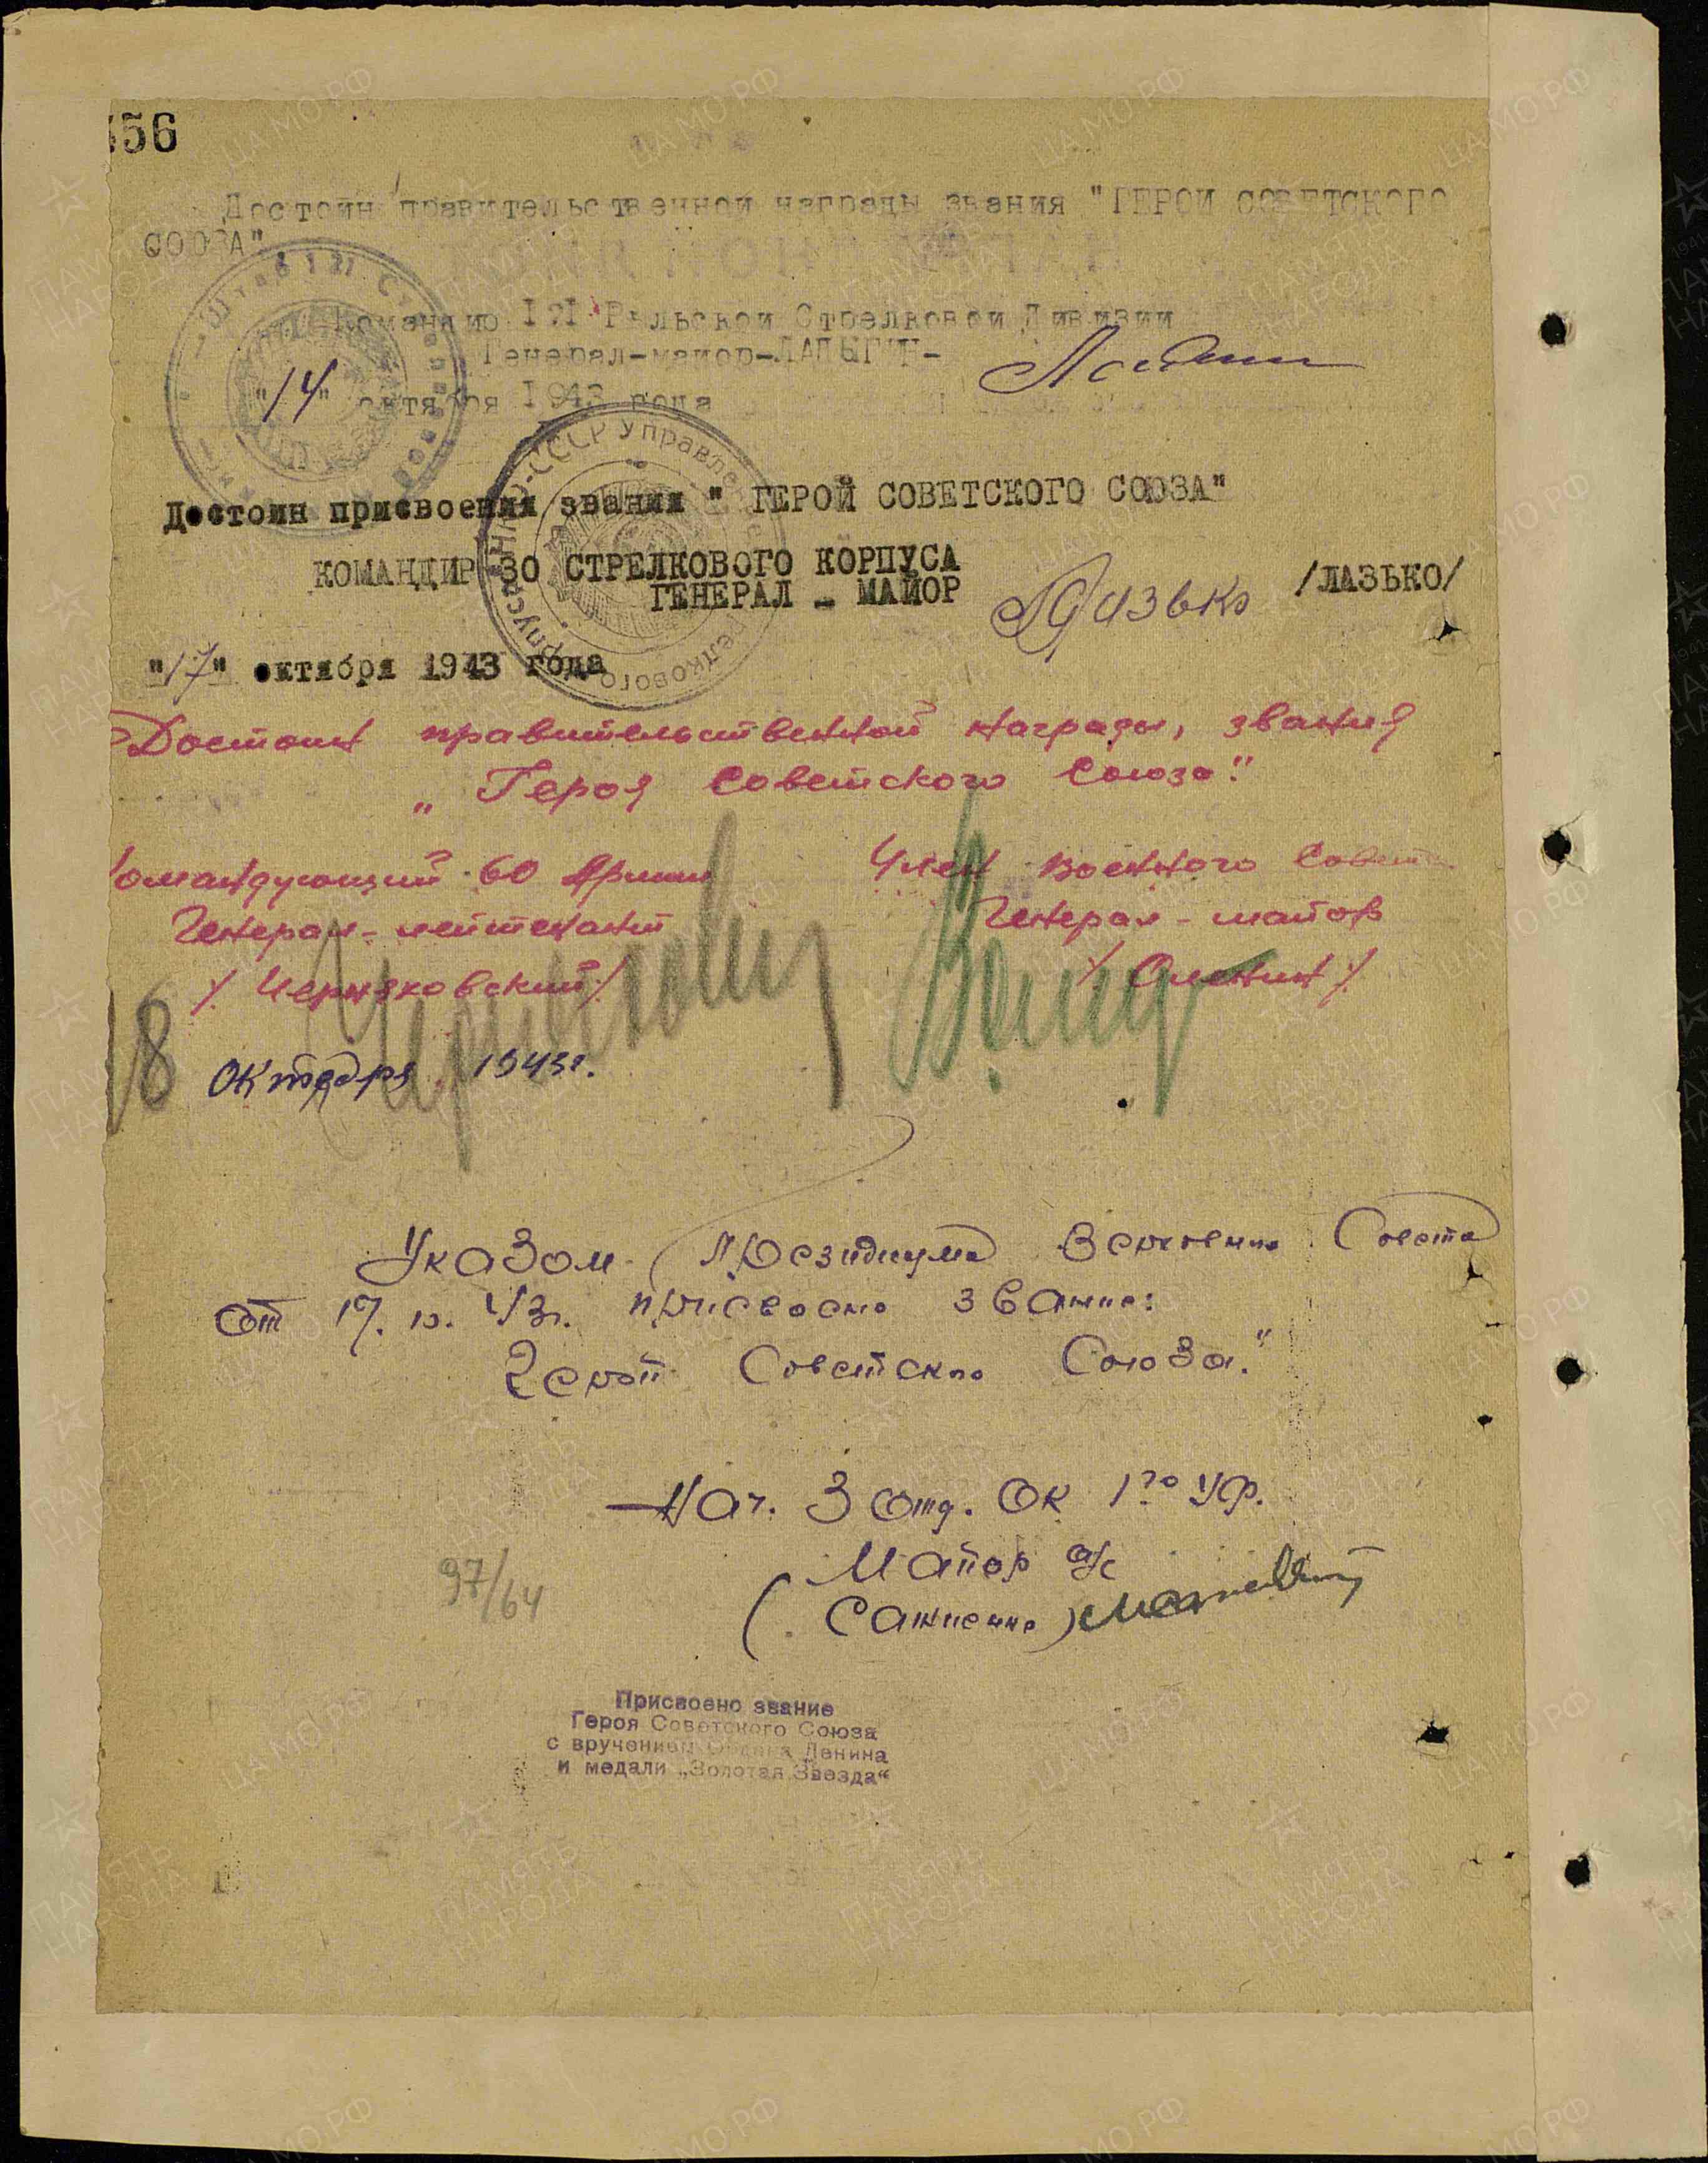 56
Достоин правительственной награды звания "ГЕРОЙ СОВЕТСКОГО
СОЮЗА"
Командир 121 Рыльской Стрелковой Дивизии
Генерал-майор-ЛАДЫГИН-
"14" октября 1943 года
Достоин присвоения звания " ГЕРОЙ СОВЕТСКОГО СОЮЗА"
КОМАНДИР 30 СТРЕЛКОВОГО КОРПУСА
ГЕНЕРАЛ - МАЙОР Лазько /ЛАЗЬКО/
"17" октября 1943 года
Достоин правительственной награды, звания
„ Героя Советского Союза".
Командующий 60 Армии
Генерал-лейтенант
/ Черняховский /
Член военного Совета
Генерал-майор
/ Оленин /
18 октября 1943г.
Указом Президиума Верховно Совета
от 17. 10. 43г. присвоено звание:
Герой Советско Союза."
Нач. 3 отд. ОК 1го Уф.
Майор а/с
97/64
Присвоено звание
Героя Советского Союза
с вручением Ордена Ленина
и медали „Золотая Звезда“
ПАМЯТЬ НАРОДА
ЦАМО.РФ